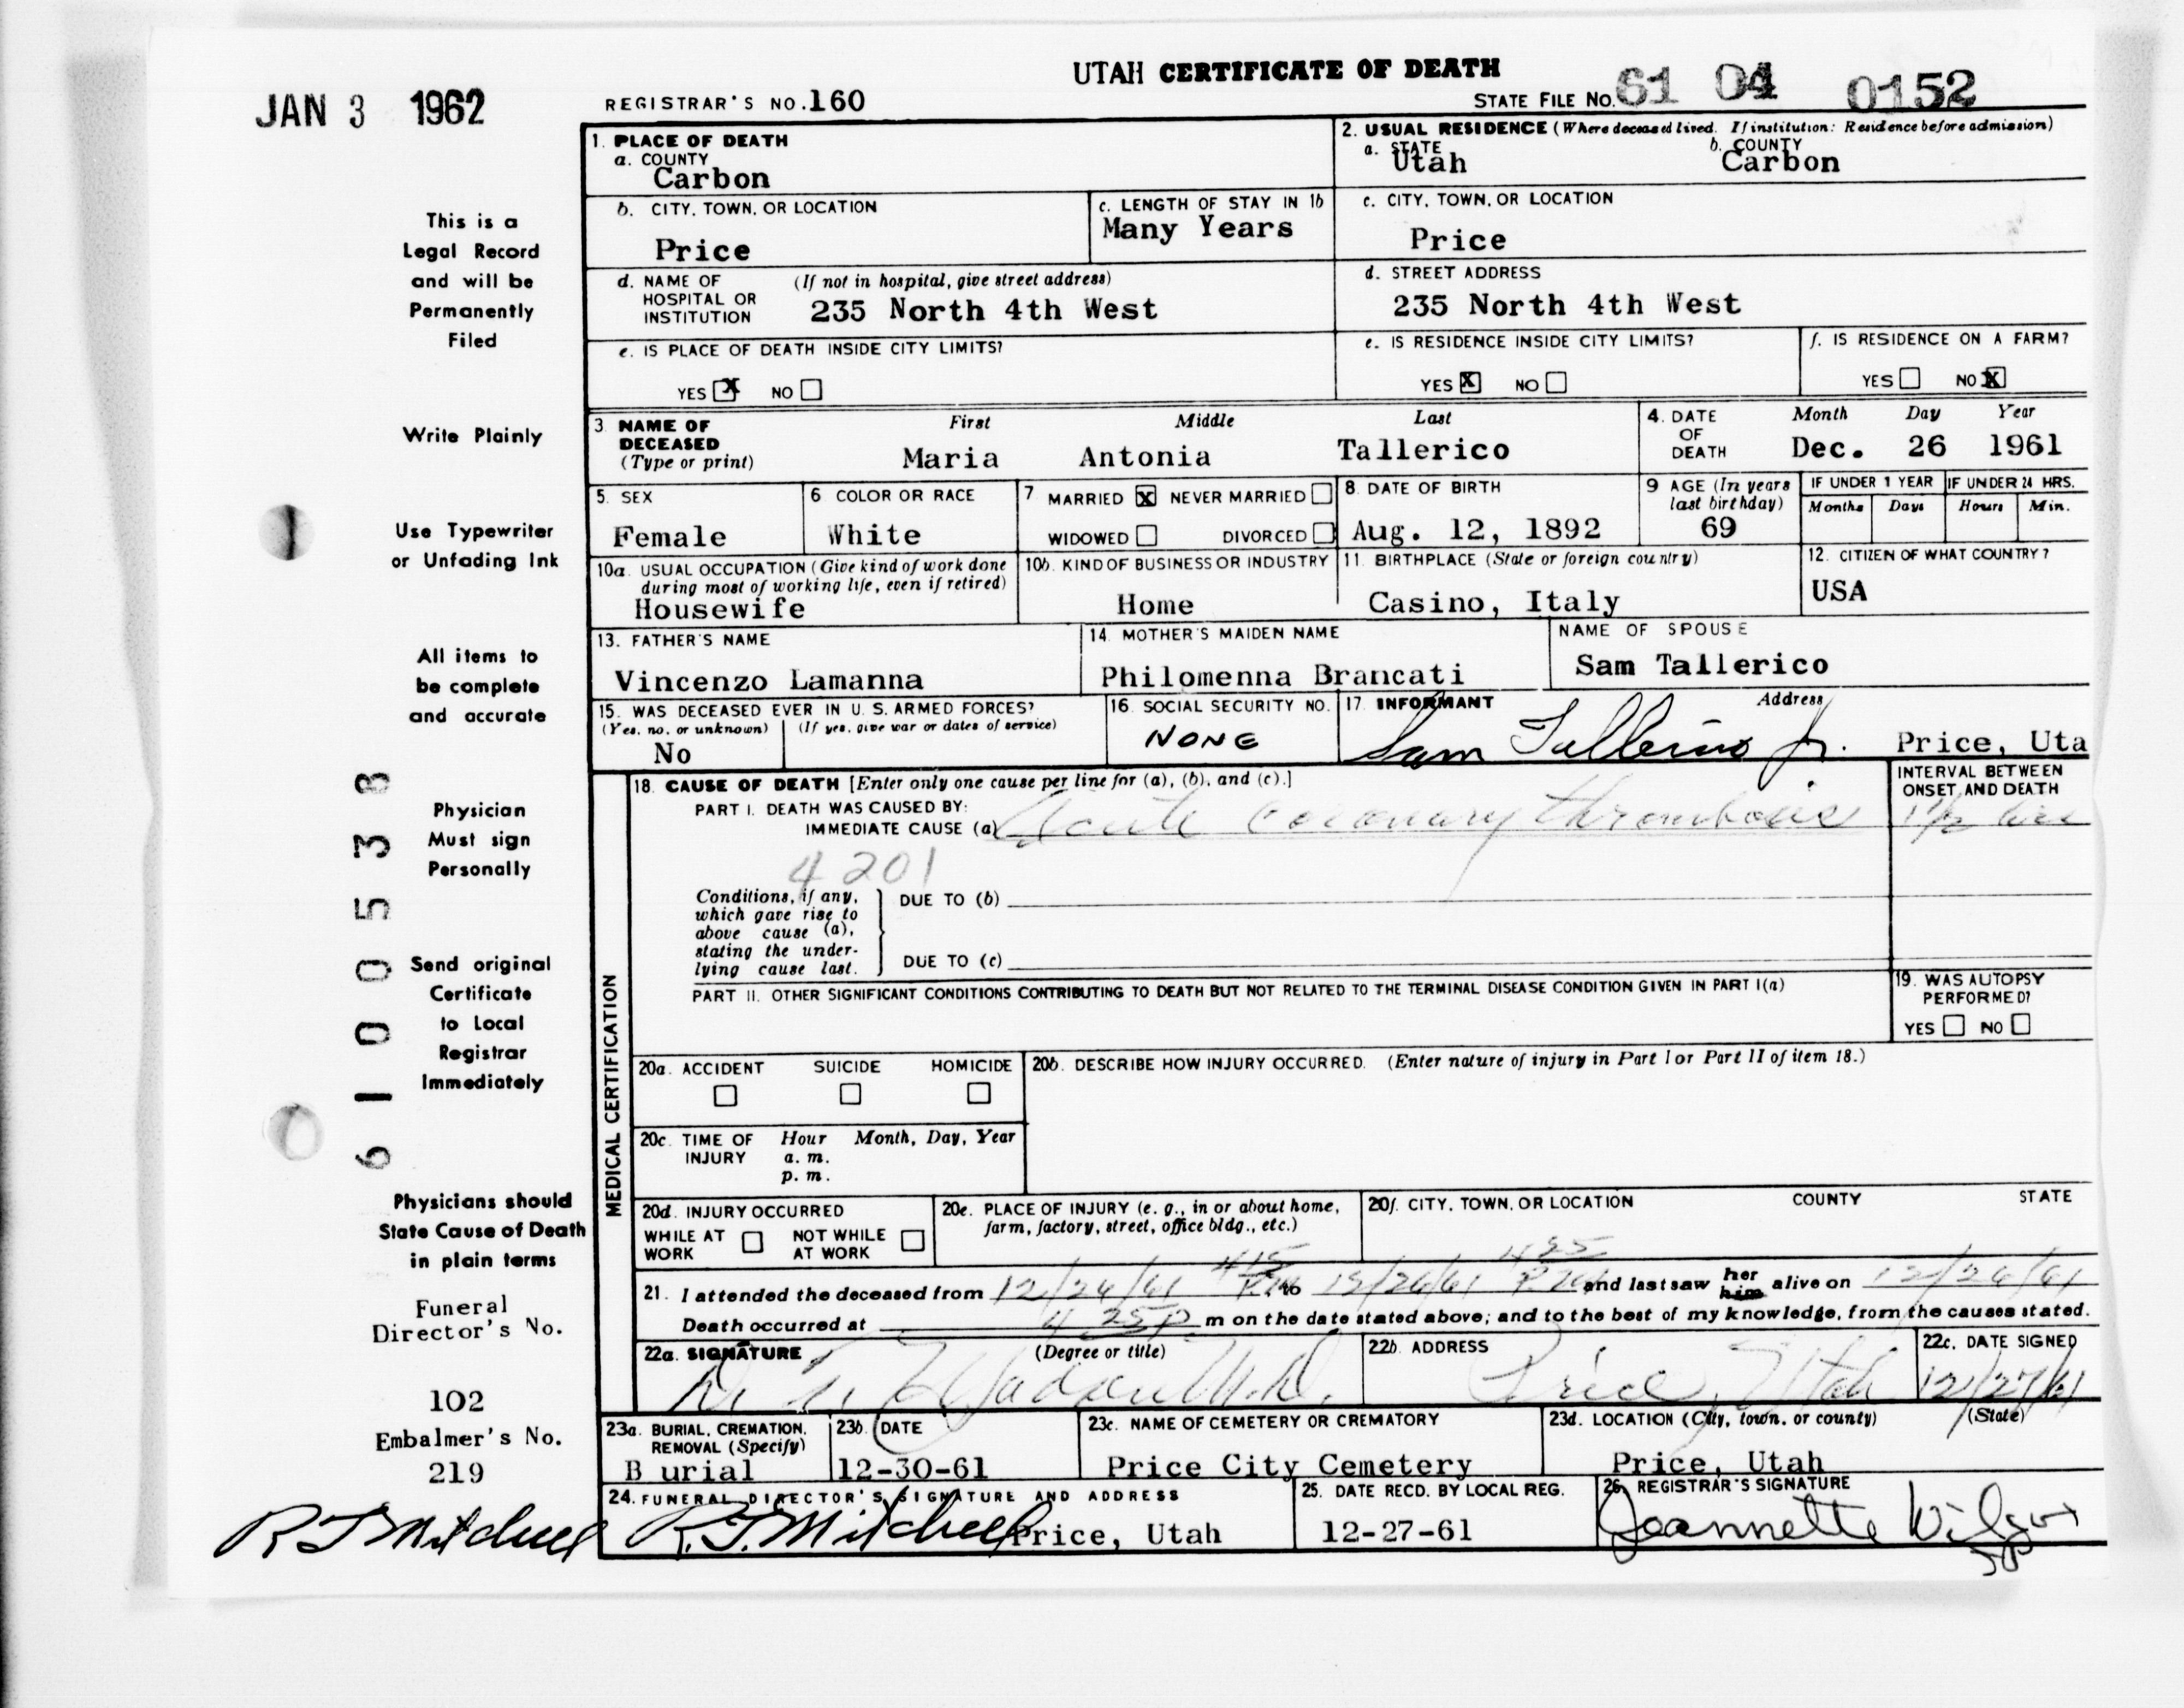 UTAH CERTIFICATE OF DEATH
JAN 3 1962
REGISTRAR'S NO. 160
STATE FILE NO. 61 04 0152
1. PLACE OF DEATH
a. COUNTY
Carbon
2. USUAL RESIDENCE (Where deceased lived. If institution: Residence before admission)
a. STATE
Utah
b. COUNTY
Carbon
b. CITY, TOWN, OR LOCATION
Price
c. LENGTH OF STAY IN 1b
Many Years
c. CITY, TOWN, OR LOCATION
Price
d. NAME OF HOSPITAL OR INSTITUTION
(If not in hospital, give street address)
235 North 4th West
d. STREET ADDRESS
235 North 4th West
e. IS PLACE OF DEATH INSIDE CITY LIMITS?
YES X NO
e. IS RESIDENCE INSIDE CITY LIMITS?
YES X NO
f. IS RESIDENCE ON A FARM?
YES NO X
3. NAME OF DECEASED
(Type or print)
First Middle Last
Maria Antonia Tallerico
4. DATE OF DEATH
Month Day Year
Dec. 26 1961
5. SEX
Female
6 COLOR OR RACE
White
7 MARRIED X NEVER MARRIED
WIDOWED DIVORCED
8. DATE OF BIRTH
Aug. 12, 1892
9 AGE (In years last birthday)
69
IF UNDER 1 YEAR
Months Days
IF UNDER 24 HRS.
Hours Min.
10a. USUAL OCCUPATION (Give kind of work done during most of working life, even if retired)
Housewife
10b. KIND OF BUSINESS OR INDUSTRY
Home
11. BIRTHPLACE (State or foreign country)
Casino, Italy
12. CITIZEN OF WHAT COUNTRY?
USA
13. FATHER'S NAME
Vincenzo Lamanna
14. MOTHER'S MAIDEN NAME
Philomenna Brancati
NAME OF SPOUSE
Sam Tallerico
15. WAS DECEASED EVER IN U. S. ARMED FORCES?
(Yes, no, or unknown) (If yes, give war or dates of service)
No
16. SOCIAL SECURITY NO.
NONE
17. INFORMANT Address
Sam Tallerico Jr. Price, Uta
MEDICAL CERTIFICATION
18. CAUSE OF DEATH [Enter only one cause per line for (a), (b), and (c).]
PART I. DEATH WAS CAUSED BY:
IMMEDIATE CAUSE (a) Acute coronary thrombosis
INTERVAL BETWEEN ONSET AND DEATH
1 1/2 hrs
4201
Conditions, if any, which gave rise to above cause (a), stating the underlying cause last.
DUE TO (b)
DUE TO (c)
PART II. OTHER SIGNIFICANT CONDITIONS CONTRIBUTING TO DEATH BUT NOT RELATED TO THE TERMINAL DISEASE CONDITION GIVEN IN PART I(a)
19. WAS AUTOPSY PERFORMED?
YES NO
20a. ACCIDENT SUICIDE HOMICIDE
20b. DESCRIBE HOW INJURY OCCURRED. (Enter nature of injury in Part I or Part II of item 18.)
20c. TIME OF INJURY
Hour Month, Day, Year
a. m.
p. m.
20d. INJURY OCCURRED
WHILE AT WORK NOT WHILE AT WORK
20e. PLACE OF INJURY (e. g., in or about home, farm, factory, street, office bldg., etc.)
20f. CITY, TOWN, OR LOCATION COUNTY STATE
21. I attended the deceased from 12/26/61 415 P.M. to 12/26/61 425 P.M. and last saw her him alive on 12/26/61
Death occurred at 4 25 P m on the date stated above; and to the best of my knowledge, from the causes stated.
22a. SIGNATURE (Degree or title)
M.D.
22b. ADDRESS
Price, Utah
22c. DATE SIGNED
12/27/61
23a. BURIAL, CREMATION, REMOVAL (Specify)
B urial
23b. DATE
12-30-61
23c. NAME OF CEMETERY OR CREMATORY
Price City Cemetery
23d. LOCATION (City, town, or county) (State)
Price, Utah
24. FUNERAL DIRECTOR'S SIGNATURE AND ADDRESS
R.J. Mitchell Price, Utah
25. DATE RECD. BY LOCAL REG.
12-27-61
26. REGISTRAR'S SIGNATURE
Jeannette
This is a
Legal Record
and will be
Permanently
Filed
Write Plainly
Use Typewriter
or Unfading Ink
All items to
be complete
and accurate
Physician
Must sign
Personally
Send original
Certificate
to Local
Registrar
Immediately
Physicians should
State Cause of Death
in plain terms
Funeral
Director's No.
102
Embalmer's No.
219
R J Mitchell
61005538